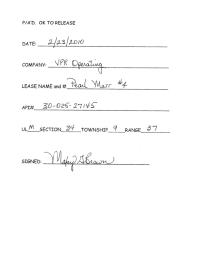 P/A'D. OK TO RELEASE
DATE: 2/23/2010
COMPANY: VPR Operating
LEASE NAME and # Pearl Marr #4
API# 30-025-27145
UL M SECTION 24 TOWNSHIP 9 RANGE 37
SIGNED: Maxey G Brown